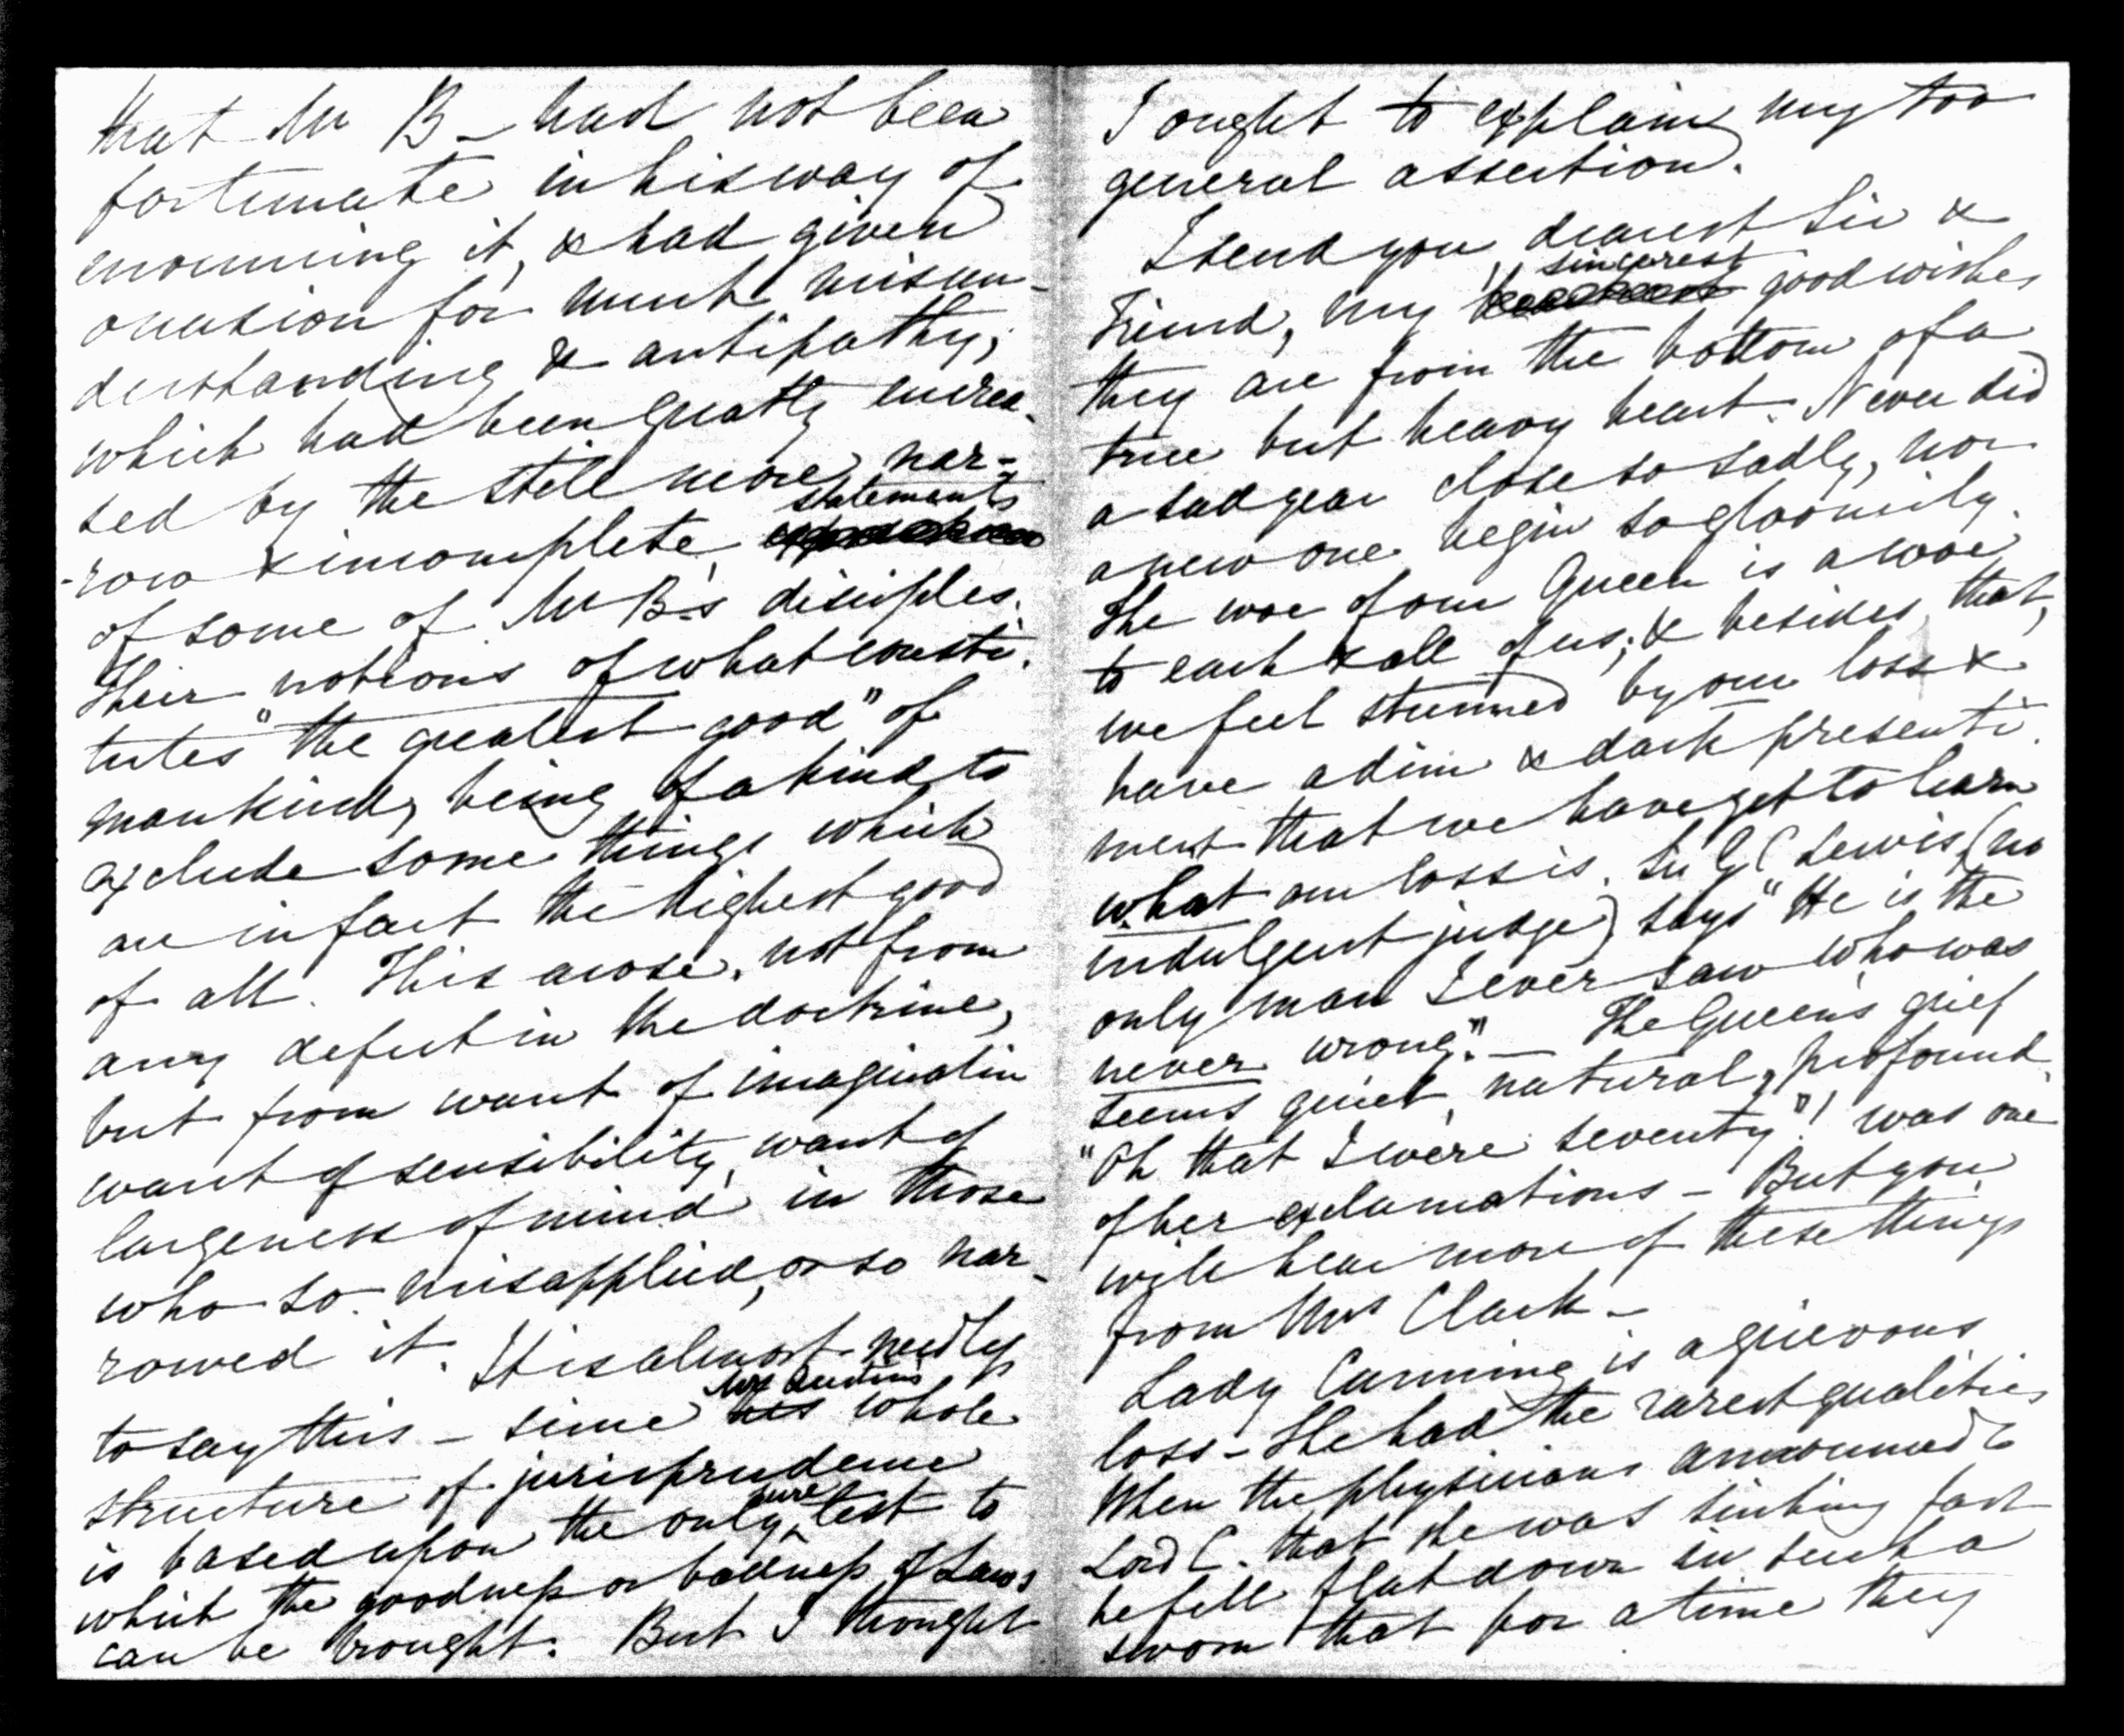 that Mr B– had not been
fortunate in his way of
enouncing it, & had given
occasion for much misun-
derstanding & antipathy,
which had been greatly encrea-
sed by the still more nar-
statements
-row & incomplete
of some of Mr B.'s disciples.
Their notions of what consti-
tutes "the greatest good" of
mankind, being of a kind to
exclude some things which
are in fact the highest good
of all. This arose, not from
any defect in the doctrine,
but from want of imagination
want of sensibility, want of
largeness of mind in those
who so misapplied, or so nar-
rowed it. It is almost needless
Mr Austin's
to say this – since his whole
structure of jurisprudence
sure
is based upon the only ^ test to
which the goodness or badness of Laws
can be brought. But I thought
I ought to explain my too
general assertion.
I send you, dearest Sir &
sincerest
Friend, my good wishes
they are from the bottom of a
true but heavy heart. Never did
a sad year close so sadly, nor
a new one begin so gloomily.
The woe of our Queen is a woe
to each & all of us; & besides that,
we feel stunned by our loss &
have a dim & dark presenti-
ment that we have yet to learn
what our loss is. Sir G C Lewis (no
indulgent judge) says "He is the
only man I ever saw who was
never wrong". – The Queen's grief
seems quiet, natural, profound.
"Oh that I were seventy"! was one
of her exclamations – But you
will hear more of these things
from Mrs Clark –
Lady Canning is a grievous
loss – She had the rarest qualities
When the physicians announced to
Lord C. that she was sinking fast
he fell flat down in such a
swoon that for a time they